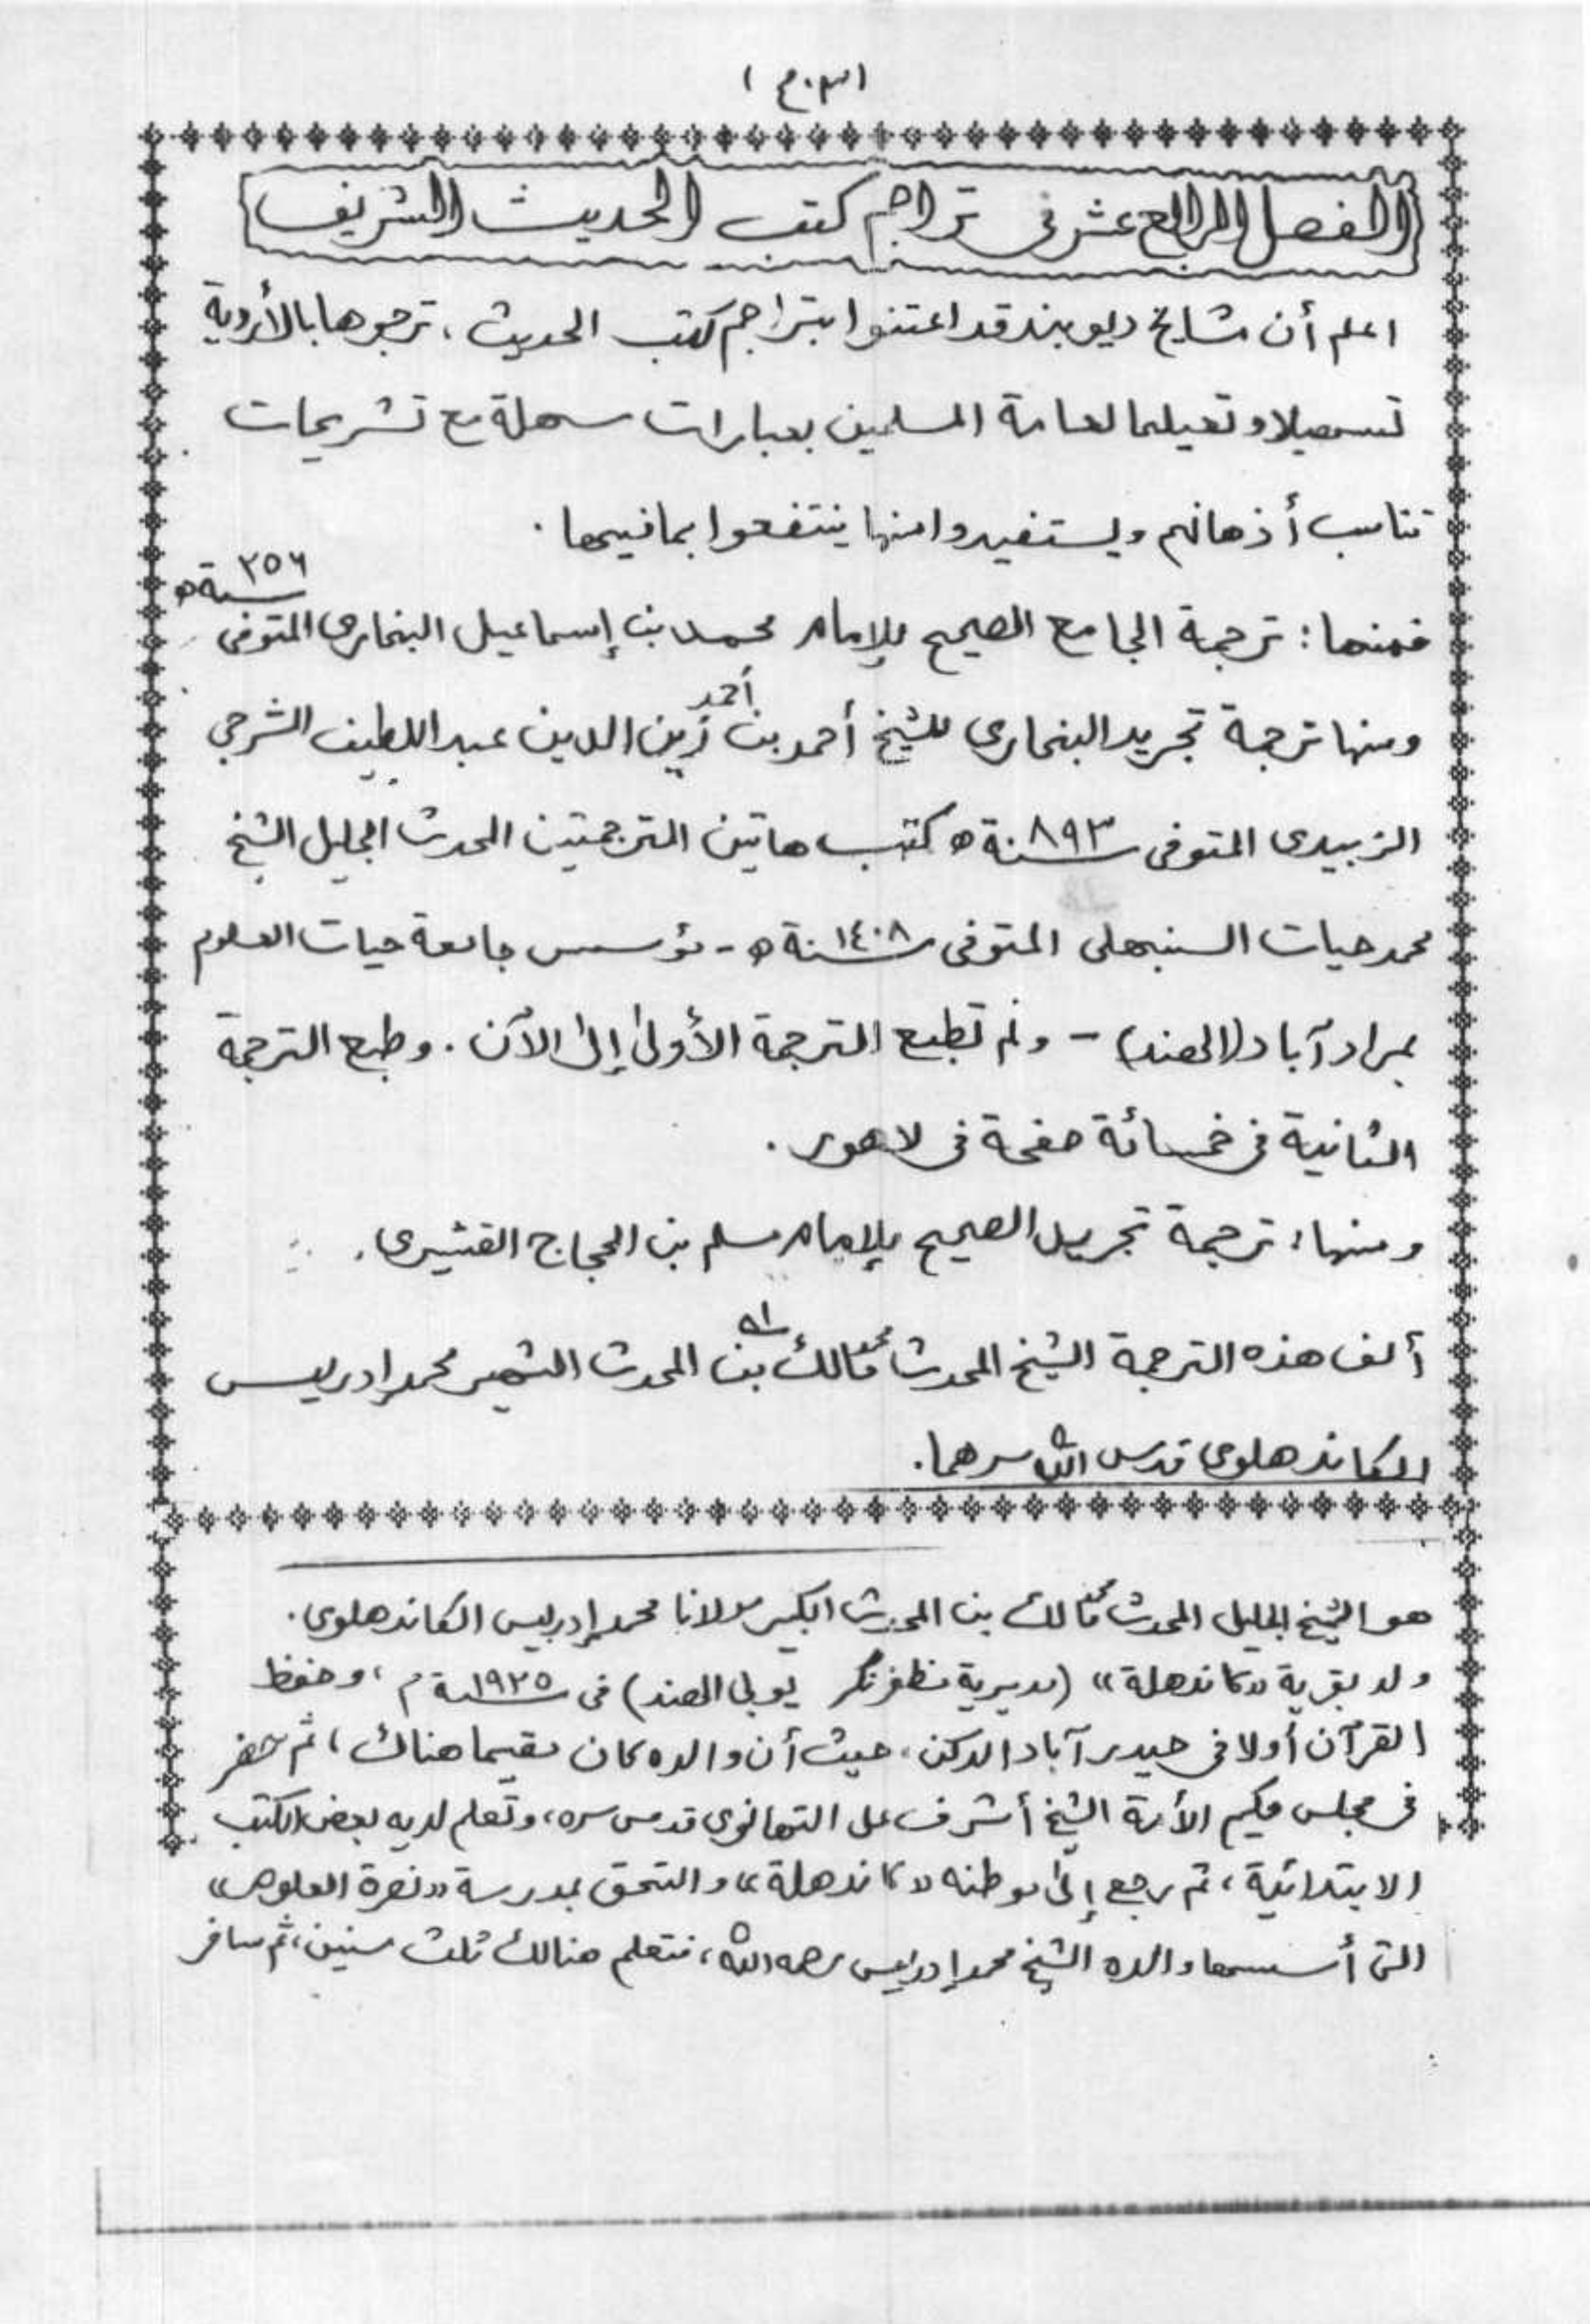 الفصل الرابع عشر في تراجم كتب الحديث الشريف
اعلم أن مشايخ ديوبند قد اعتنوا بتراجم كتب الحديث، ترجموها بالأردية
تسهيلا وتعيلما لعامة المسلمين بعبارات سهلة مع تشريحات
تناسب أذهانهم ويستفيدوا منها ينتفعوا بما فيها.
فمنها: ترجمة الجامع الصحيح للإمام محمد بن إسماعيل البخاري المتوفى سنة ٢٥٦ ه
ومنها ترجمة تجريد البخاري للشيخ أحمد بن أحمد زين الدين عبد اللطيف الشرجي
الزبيدى المتوفى سنة ٨٩٣ ه كتب هاتين الترجمتين المحدث الجليل الشيخ
محمد حيات السنبهلى المتوفى سنة ١٤٠٨ ه - مؤسس جامعة حيات العلوم
بمراد آباد (الهند) - ولم تطبع الترجمة الأولى إلى الآن. وطبع الترجمة
الثانية في خمسائة صفحة في لاهور.
ومنها: ترجمة تجريد الصحيح للإمام مسلم بن الحجاج القشيرى.
ألف هذه الترجمة الشيخ المحدث محمد مالك بن المحدث الشهير محمد إدريس
الكاندهلوى قدس الله سرهما.
هو الشيخ الجليل المحدث محمد مالك بن المحدث الكبير مولانا محمد إدريس الكاندهلوى.
ولد بقرية «كاندهلة» (مديرية مظفرنگر يوبي الهند) فى سنة ١٩٢٥ م، وحفظ
القرآن أولا في حيدر آباد الدكن، حيث أن والده كان مقيما هناك، ثم حضر
فى مجلس حكيم الأمة الشيخ أشرف على التهانوى قدس سره، وتعلم لديه بعض الكتب
الابتدائية، ثم رجع إلى موطنه «كاندهلة» والتحق بمدرسة «نصرة العلوم»
التى أسسها والده الشيخ محمد إدريس رحمه الله، فتعلم هنالك ثلث سنين، ثم سافر